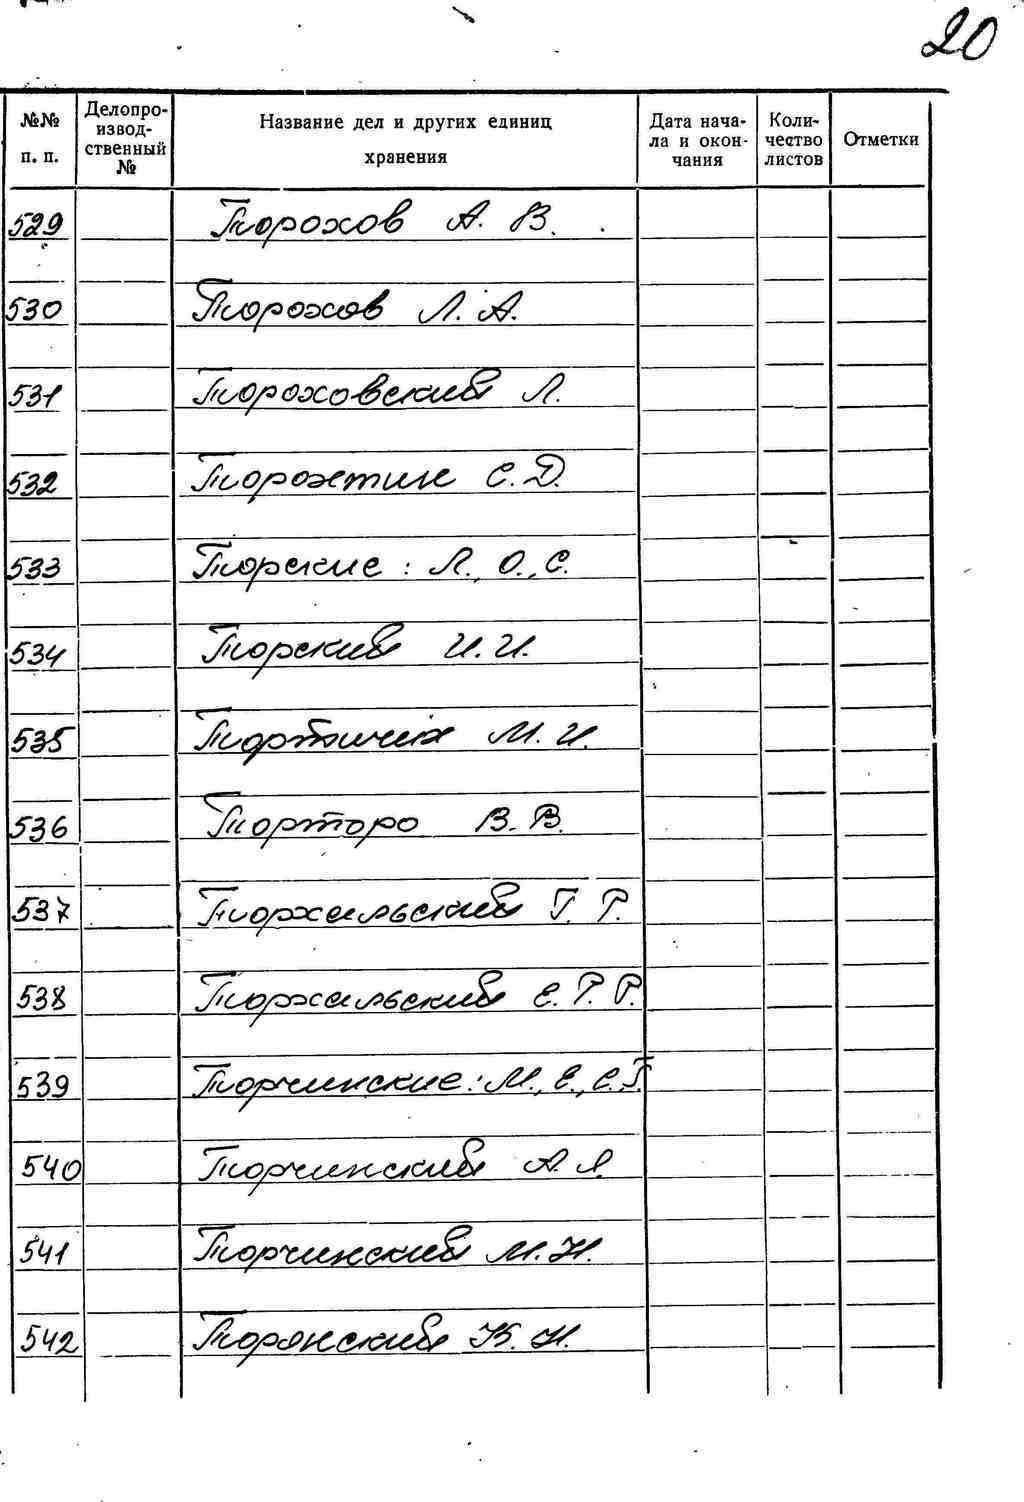 20
№№ п. п. Делопро-изводственный № Название дел и других единиц хранения Дата начала и окончания Количество листов Отметки
529 Торохов А. В.
530 Торохов Л. А.
531 Тороховский Л.
532 Торохтин С. Д.
533 Торские: Л., О., С.
534 Торский И. И.
535 М. И.
536 Торторо В. В.
537 Торхальский Г. Р.
538 Торхальский Е. Р. Р.
539 Торчинские: М., Е., С. Г.
540 Торчинский А. Л.
541 Торчинский М. Н.
542 Торянский К. Н.